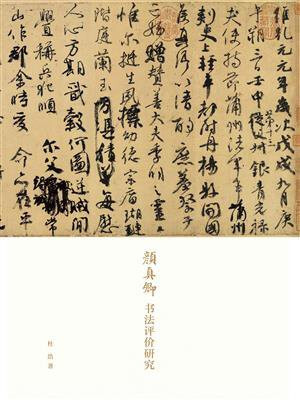 維乾元元年歲次戊戌九月庚
午朔三日壬申第十三叔銀青光祿
夫使持節蒲州諸軍事蒲州
刺史上輕車都尉丹楊縣開國
侯真卿以清酌庶羞祭于
亡姪贈贊善大夫季明之靈
惟爾挺生夙標幼德宗廟瑚璉
階庭蘭玉每慰
人心方期戩穀何圖逆賊間
釁稱兵犯順爾父常
山作郡余時受命亦在平
顏真卿
书法评价研究
杜浩 著